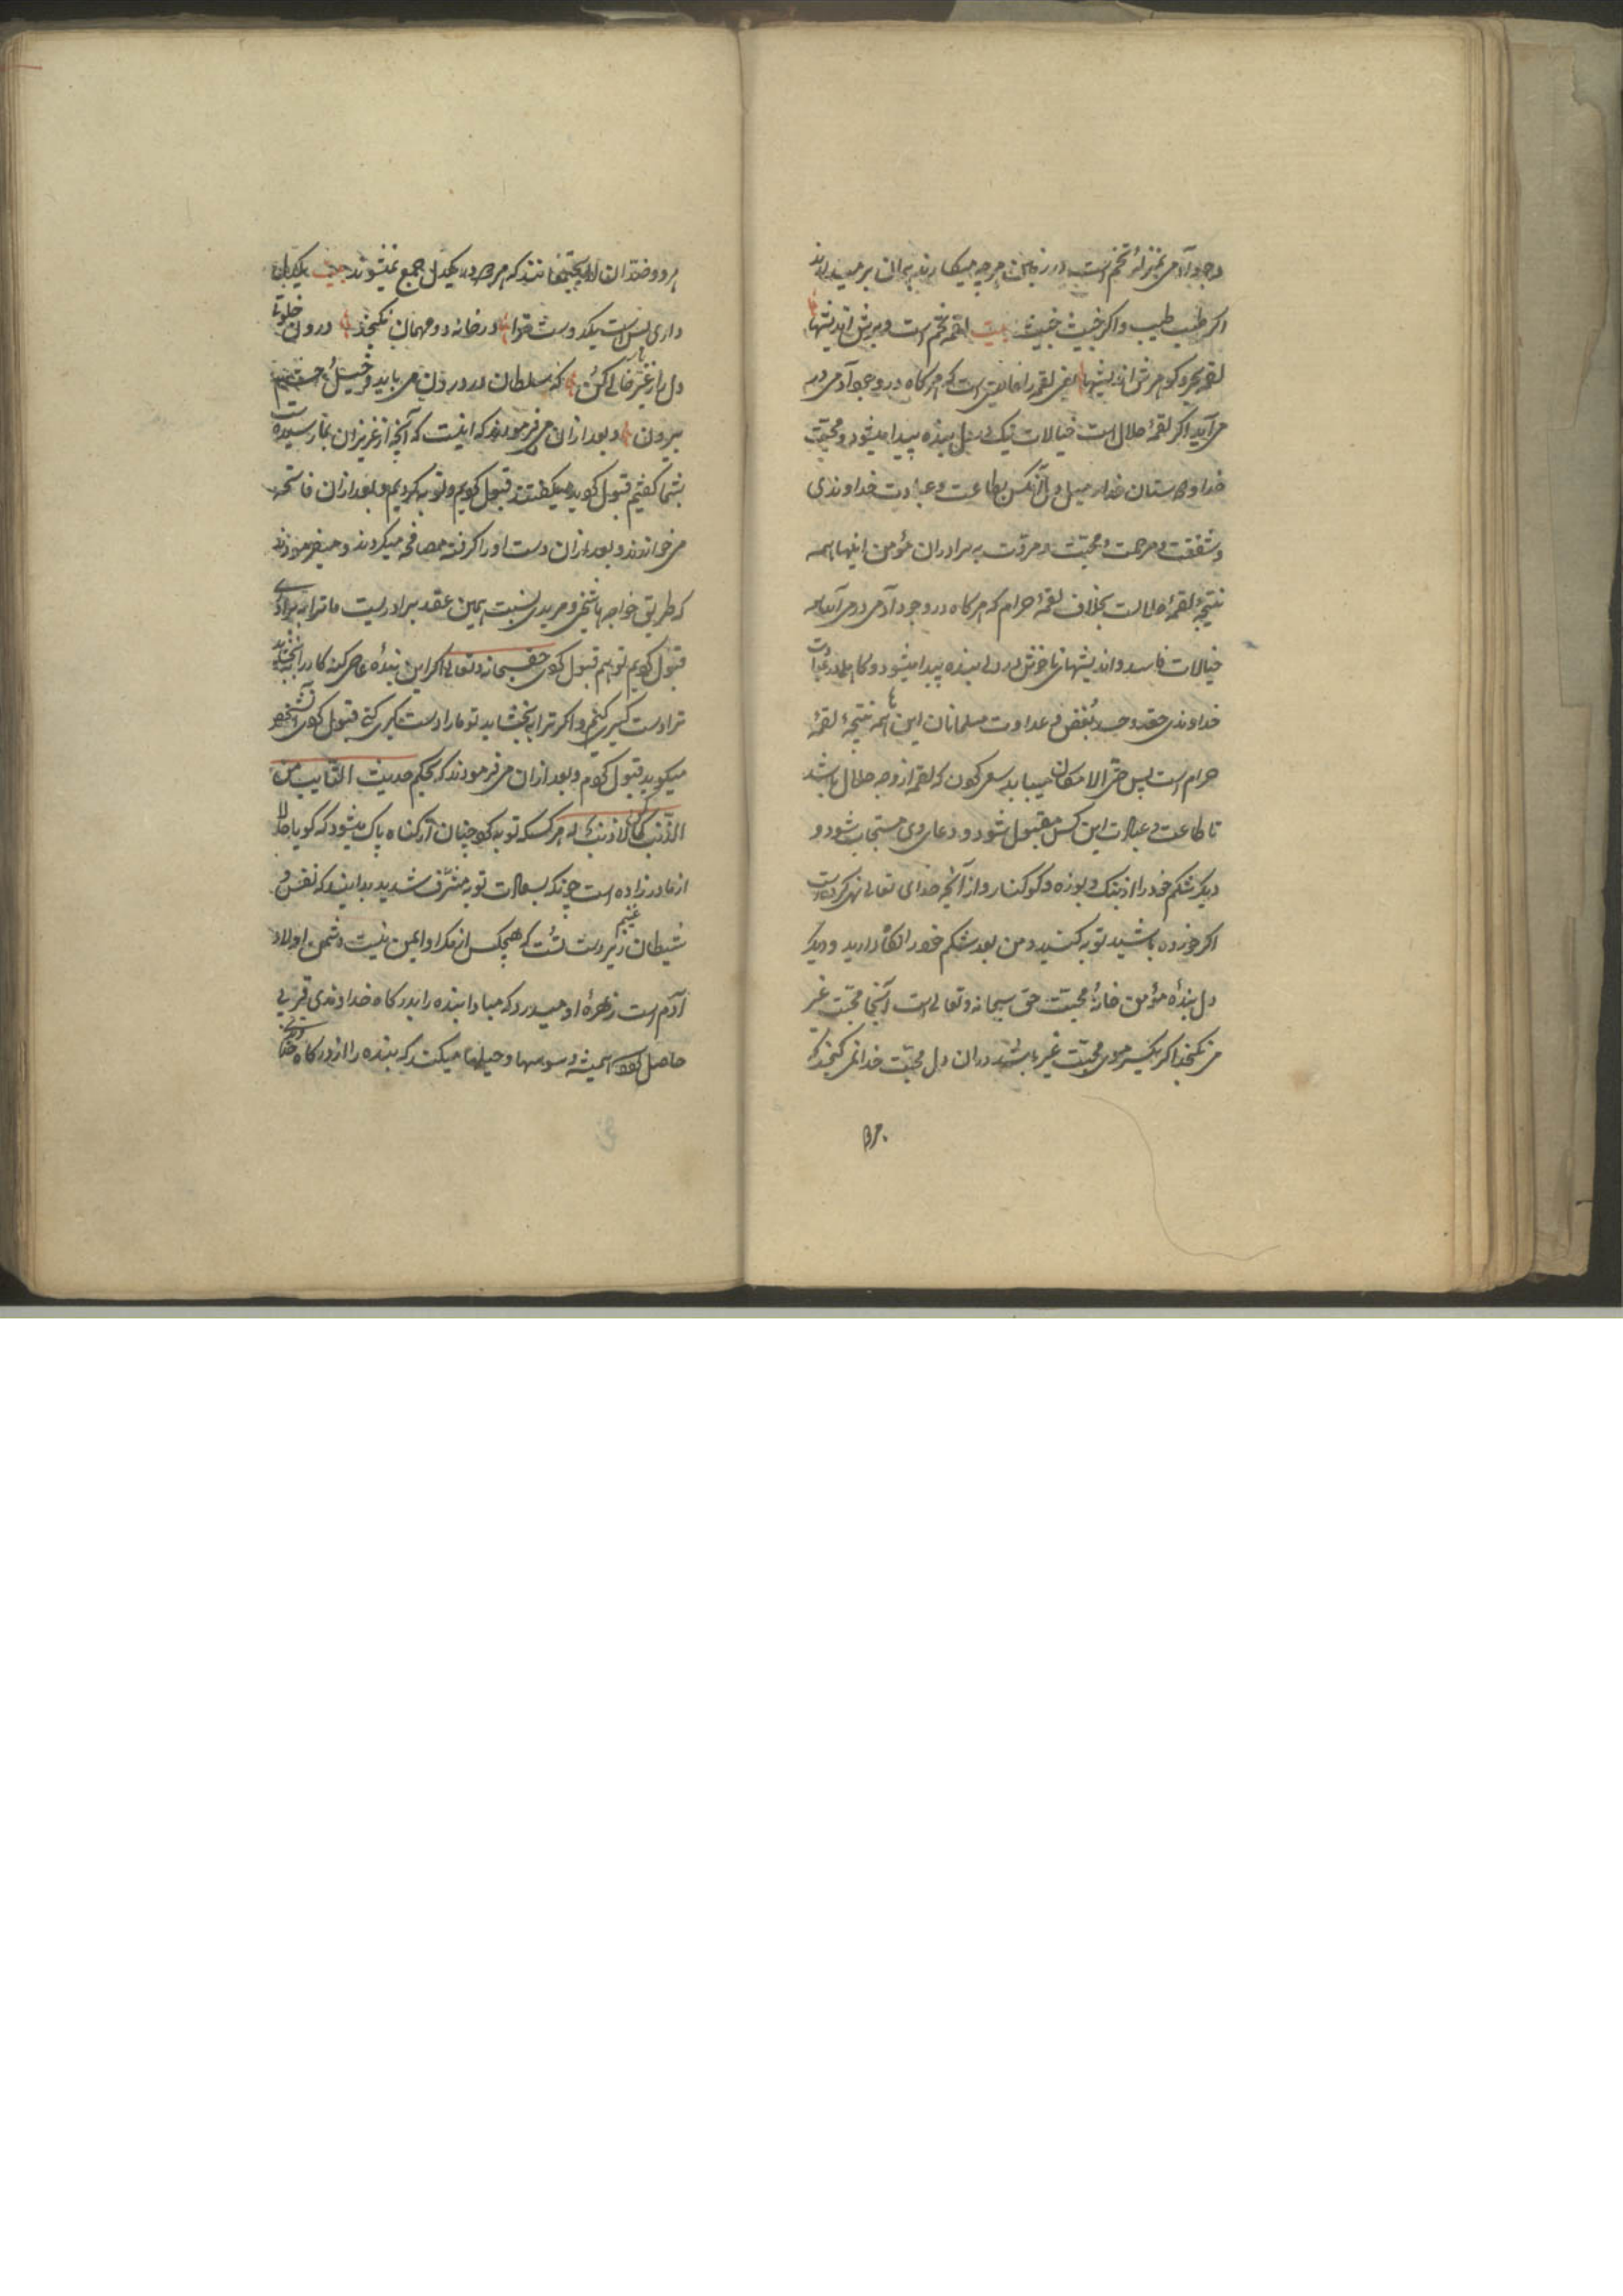 وجود آدمی بمنزلهٔ تخم است در زمین هرچه میکارند همان بر میدارند
اکر طیب طیب و اکر خبیث خبیث بیت لقمه تخم است و برش اندیشها
لقمه بحر و کوهرش اندیشها یعنی لقمه را خاصیتی است که هرکاه در وجود آدمی در
می آید اکر لقمهٔ حلال است خیالات نیک در دل بنده پیدا میشود و محبت
خدا و دوستان خدا و میل دل آنکس بطاعت و عبادت خداوندی
و شفقت و مرحمت و محبت و مروت به برادران مؤمن اینها همه
نتیجهٔ لقمهٔ حلالست بخلاف لقمهٔ حرام که هرکاه در وجود آدمی درمی آید همه
خیالات فاسد و اندیشهای ناخوش در دل بنده پیدا میشود و کاهلی در عبادت
خداوندی حقد و حسد و بغض و عداوت مسلمانان این ها همه نتیجهٔ لقمهٔ
حرام است پس حتی الامکان میباید سعی کردن که لقمه از وجه حلال باشد
تا طاعت و عبادت این کس مقبول شود و دعای وی مستجاب شود و
دیکر شکم خود را از بنک و بوزه و کوکنار و از آنچه خدای تعالی نهی کرده است
اکر خورده باشید توبه کنید و من بعد شکم خود را نکاه دارید و دیکر
دل بندهٔ مؤمن خانهٔ محبت حق سبحانه و تعالی است آنجا محبت غیر
می نکنجد اکر یکسر موی محبت غیر باشد در آن دل محبت خدا نمی کنجد که
۲۵۰
هر دو ضدان لا یجتمعانند که هر دو در یکدل جمع نمیشوند بیت یکدل
داری بس است یکدوست ترا در خانه دو مهمان نکنجد درون خلوت
دل را ز غیر خالی کن که سلطان در درون می باید و خیل و حشم
بیرون و بعد ازان می فرمودند که اینست که آنچه از عزیزان بما رسیده است
بشما کفتیم قبول کردید میکفتند قبول کردیم و توبه کردیم و بعد ازان فاتحه
می خواندند و بعد ازان دست او را کرفته مصافحه میکردند و میفرمودند
که طریق خواجه ما شیخی و مریدی نیست همین عقد برادریست ما ترا به برادری
قبول کردیم تو هم قبول کردی حق سبحانه و تعالی اکر این بندهٔ عاصی کنه کار را بخشاید
ترا دست کیری کنم و اکر ترا ببخشاید تو ما را دست کیری کنی قبول کردی آنشخص
میکوید قبول کردم و بعد ازان می فرمودند که بحکم حدیث التائب من
الذنب کمن لا ذنب له هر کسکه توبه کرد چنان از کناه پاک میشود که کویا حالا
از مادر زاده است چونکه بسعادت توبه مشرف شدید بدانید که نفس و
شیطان غنیم زبردست است که هیچکس از مکر او ایمن نیست دشمن اولاد
آدم است زهرهٔ او میدرد که مبادا بنده را بدرکاه خداوندی قربی
حاصل کردد همیشه وسوسها و حیلها میکند که بنده را از درکاه خداوندی